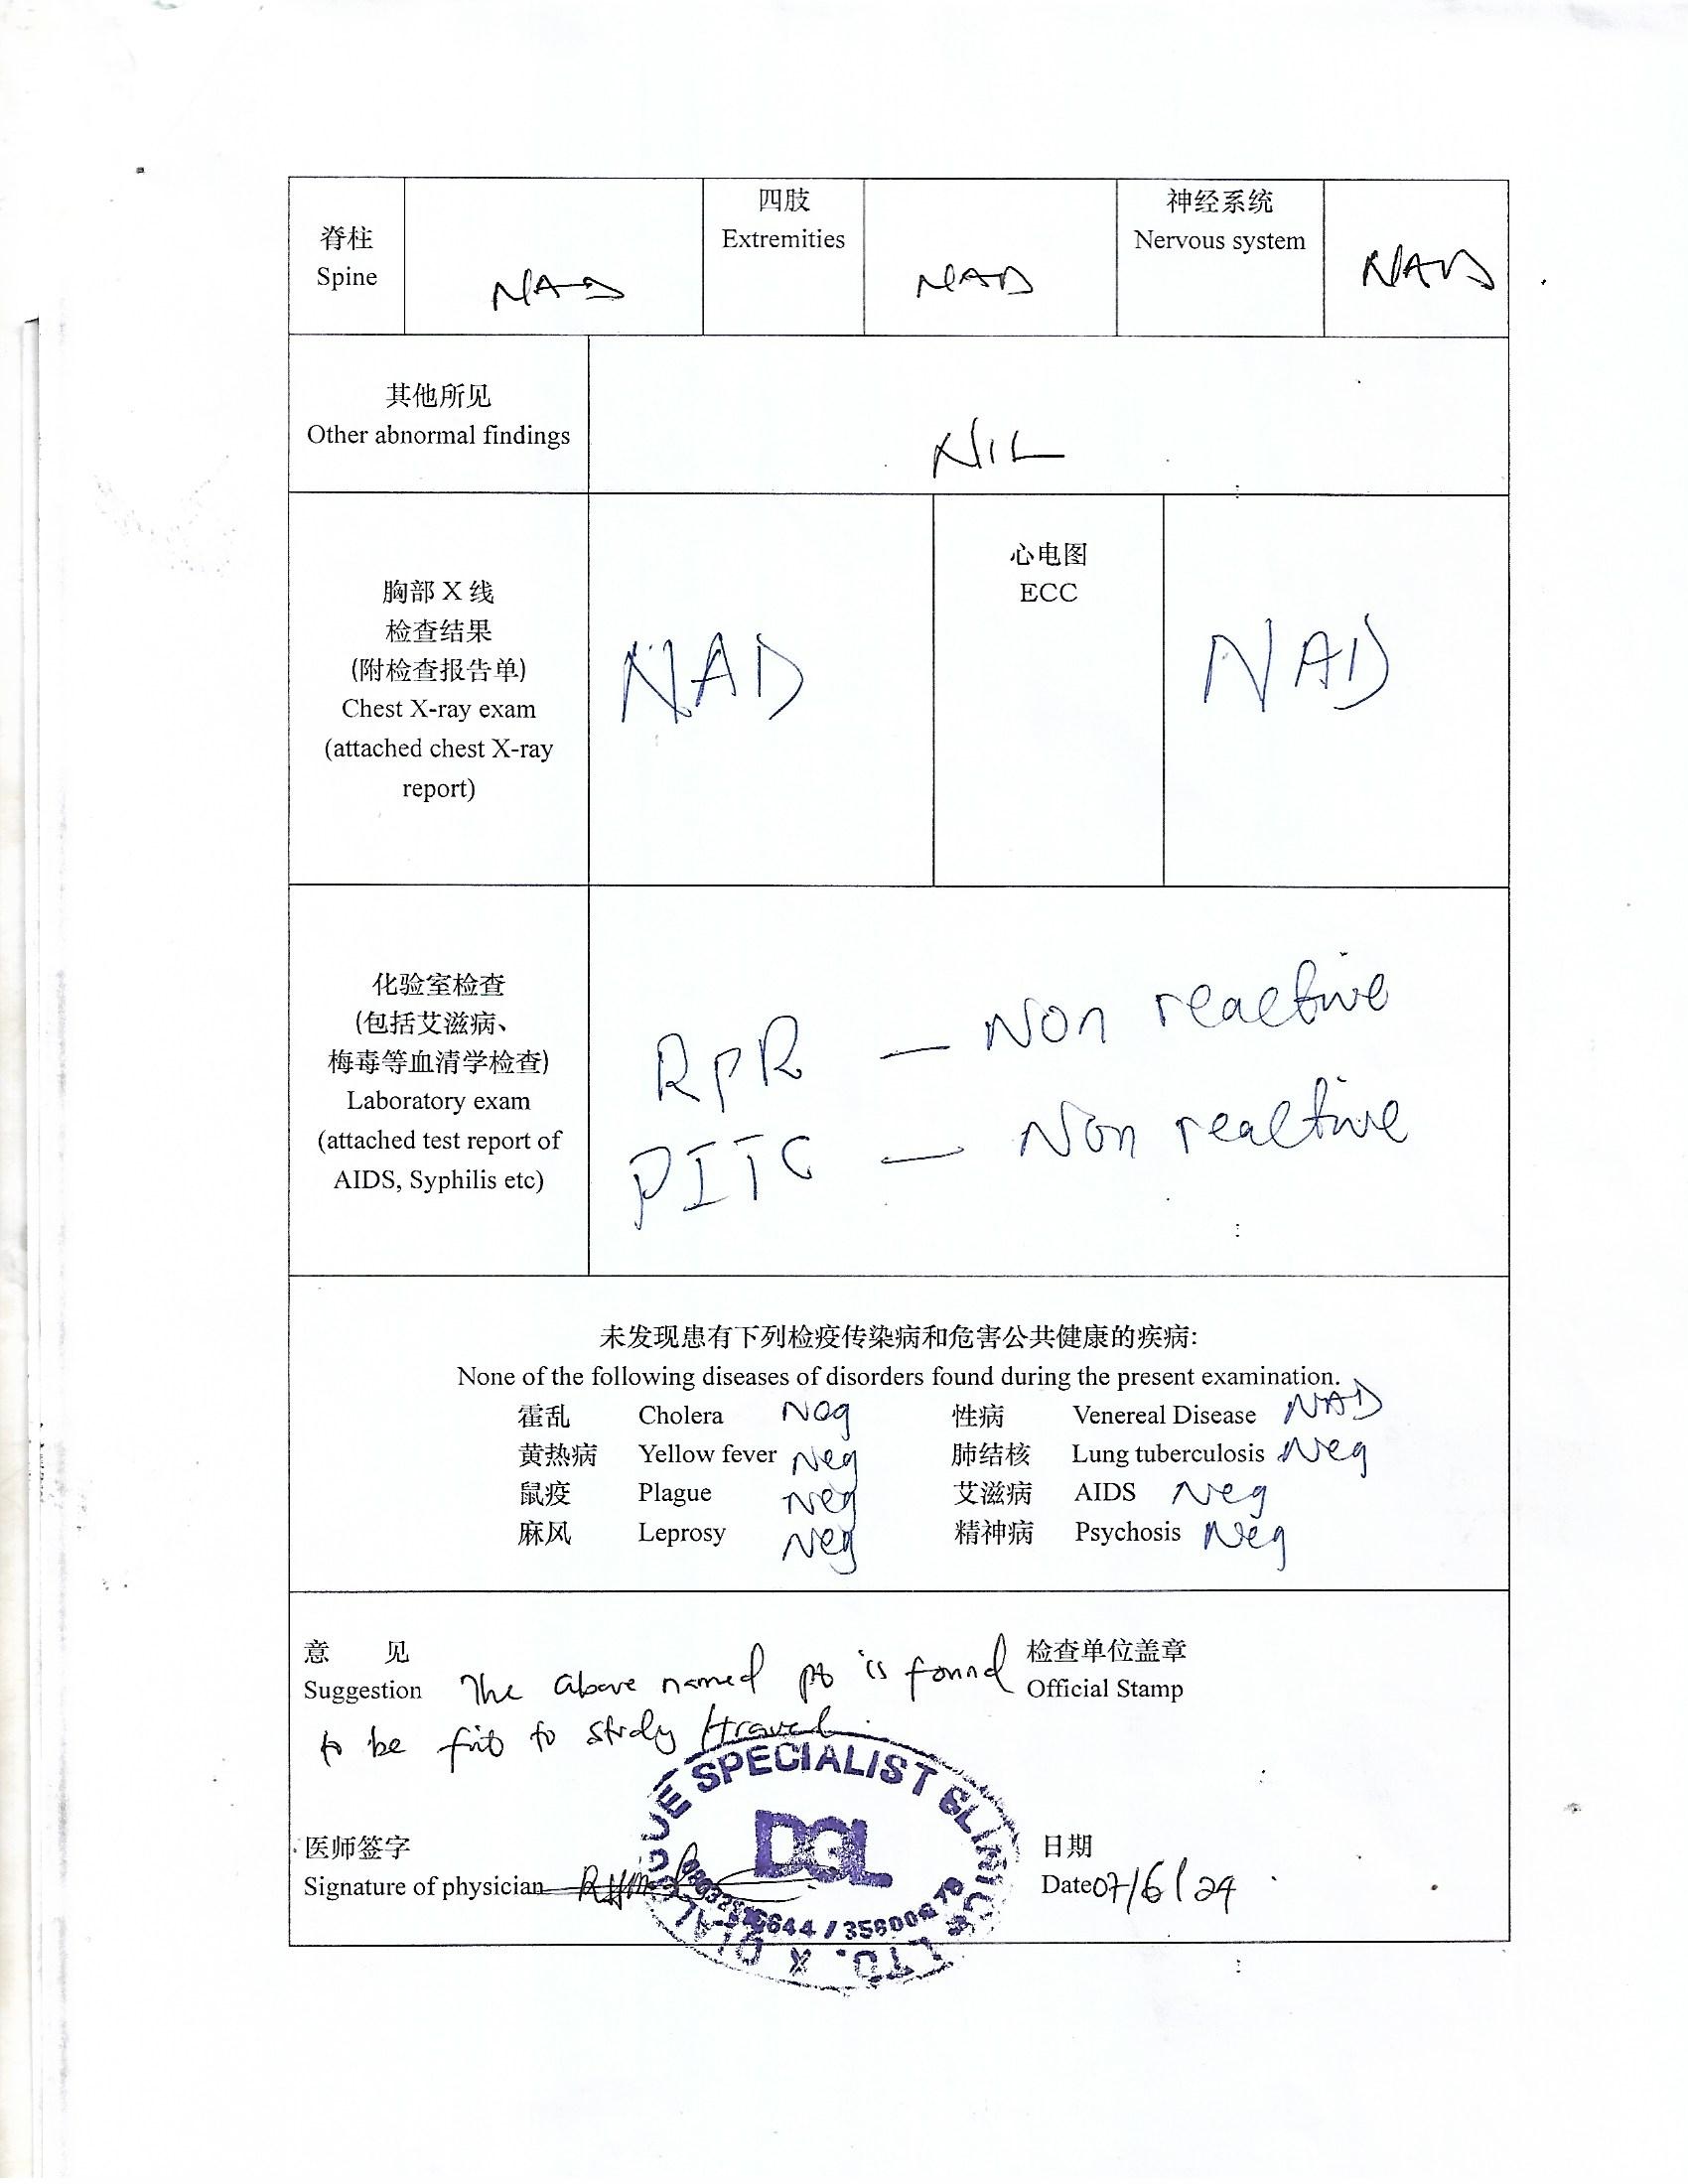 脊柱
Spine
NAD
四肢
Extremities
NAD
神经系统
Nervous system
NAD
其他所见
Other abnormal findings
NIL
胸部 X 线
检查结果
(附检查报告单)
Chest X-ray exam
(attached chest X-ray
report)
NAD
心电图
ECC
NAD
化验室检查
(包括艾滋病、
梅毒等血清学检查)
Laboratory exam
(attached test report of
AIDS, Syphilis etc)
RPR — Non reactive
PITC — Non reactive
未发现患有下列检疫传染病和危害公共健康的疾病:
None of the following diseases of disorders found during the present examination.
霍乱 Cholera Neg 性病 Venereal Disease NAD
黄热病 Yellow fever Neg 肺结核 Lung tuberculosis Neg
鼠疫 Plague Neg 艾滋病 AIDS Neg
麻风 Leprosy Neg 精神病 Psychosis Neg
意 见
Suggestion The above named pt is found
to be fit to study /travel.
检查单位盖章
Official Stamp
SPECIALIST CLINICS LTD. X
DGL
医师签字
Signature of physician
日期
Date 07/6/24